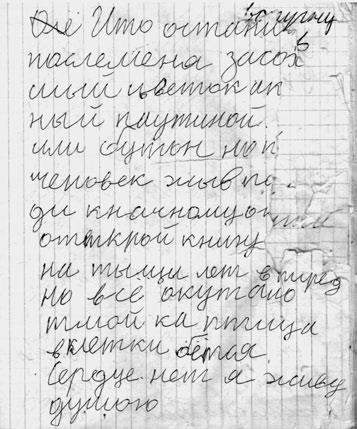 Што остани
послемена засох
шый цветок ик
ный паутиной
или бутон нит
человек жыв по
ди кначному
отткрой книну
на тыщи лет вперед
но все окутано
тмой ка птица
вклетки бётся
Сердце нет я живу
думою